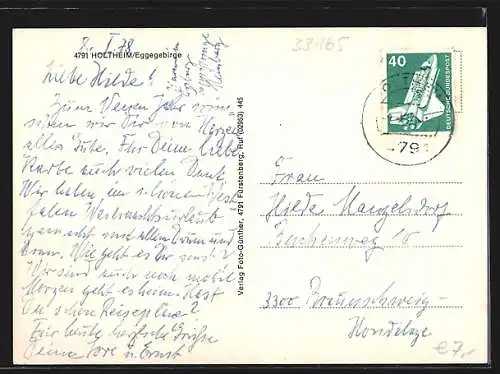 2. I. 78
4791 HOLTHEIM/Eggegebirge
33165
Liebe Hilde!
Zum Neuen Jahr wün-
schen wir Dir von Herzen
alles Gute. Für Deine liebe
Karte auch vielen Dank
Wir haben im schönen West
falen Weihnachtsurlaub
gemacht mit allem Drum und
Dran. Wie geht es Dir sonst?
Wir sind auch noch mobil
Morgen geht es heim. Hast
Du schon Reisepläne?
Für heute herzliche Grüße
Deine Lore u. Ernst
Verlag Foto-Günther, 4791 Fürstenberg, Ruf (02953) 445
40
DEUTSCHE BUNDESPOST
479
Frau
Hilde Mangelsdorf
3300 Braunschweig-
Hondelage
€7,-